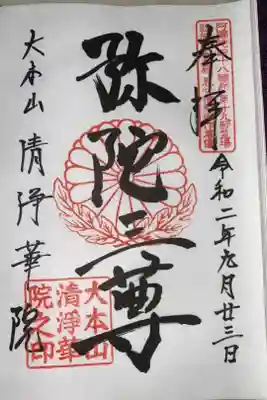 奉拝
令和二年 月廿三日
弥陀三尊
大本山
清淨華
院之印
大本山 清浄華院